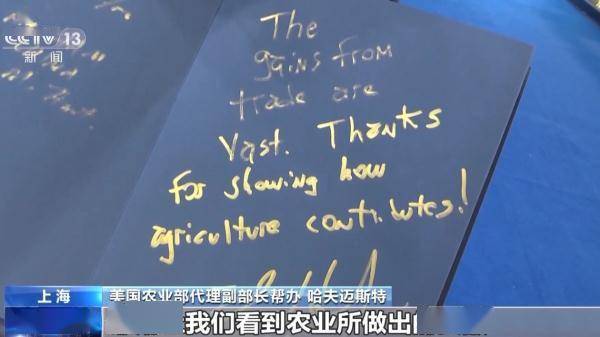 CCTV 13
新闻
The
gains from
trade are
Vast. Thanks
for showing how
agriculture contributes!
上海
美国农业部代理副部长帮办 哈夫迈斯特
我们看到农业所做出